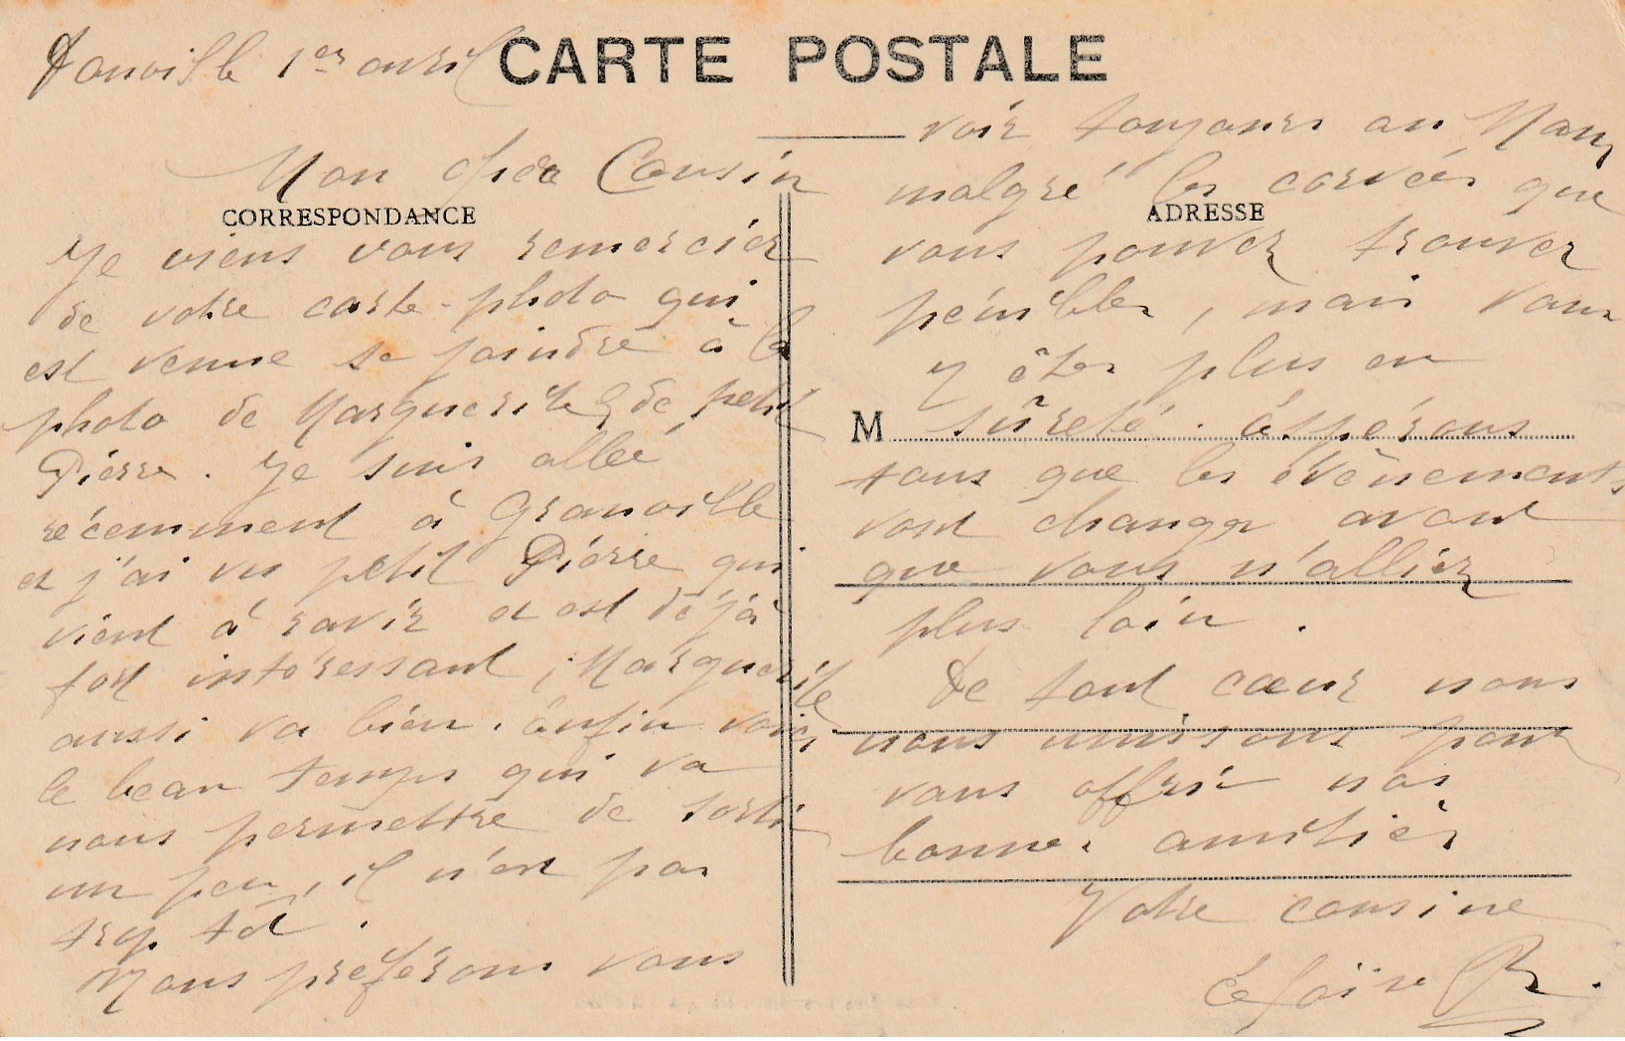 Donville 1er avril
CARTE POSTALE
Mon cher Cousin
CORRESPONDANCE
Je viens vous remercier
de votre carte-photo qui
est venue se joindre à la
photo de Marguerite & de petit
Pierre. Je suis allée
récemment à Granville
et j'ai vu petit Pierre qui
vient à ravir et est déjà
fort intéressant, Marguerite
aussi va bien. enfin voici
le beau temps qui va
nous permettre de sortir
un peu, il n'est pas
trop tôt.
Nous préférons vous
voir toujours au Mans
malgré les corvées que
ADRESSE
vous pouvez trouver
pénibles, mais vous
y êtes plus en
M sûreté. éspérons
tous que les évènements
vont changer avant
que vous n'alliez
plus loin.
De tout cœur nous
nous unissons pour
vous offrir nos
bonnes amitiés
Votre cousine